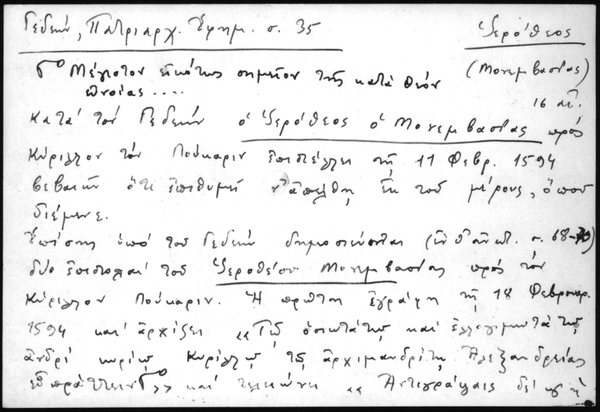 Γεδεών, Πατριαρχ. Ἐφημ. σ. 35
Ἱερόθεος
(Μονεμβασίας)
16 αἰ.
Τὸ Μέγιστον εἰκότως σημεῖον τῆς κατὰ θεὸν
εὐνοίας....
Κατὰ τὸν Γεδεών ὁ Ἱερόθεος ὁ Μονεμβασίας πρὸς
Κύριλλον τὸν Λούκαριν ἐπιστέλλει τῇ 11 Φεβρ. 1594
βεβαιῶν ὅτι ἐπιθυμεῖ ν' ἀπέλθῃ ἐκ τοῦ μέρους, ὅπου
διέμενε.
Ἐπίσης ὑπὸ τοῦ Γεδεών δημοσιεύονται (ἔνθ' ἀνωτ. σ. 68-70)
δύο ἐπιστολαὶ τοῦ Ἱεροθέου Μονεμβασίας πρὸς τὸν
Κύριλλον Λούκαριν. Ἡ πρώτη ἐγράφη τῇ 18 Φεβρουαρ.
1594 καὶ ἀρχίζει «Τῷ ὁσιωτάτῳ καὶ ἐλλογιμωτάτῳ
ἀνδρὶ κυρίῳ Κυρίλλῳ τῷ ἀρχιμανδρίτῃ Ἀλεξανδρείας
εὖ πράττειν Τὸ» καὶ τελειώνει «Ἀντιγράψαις δέ